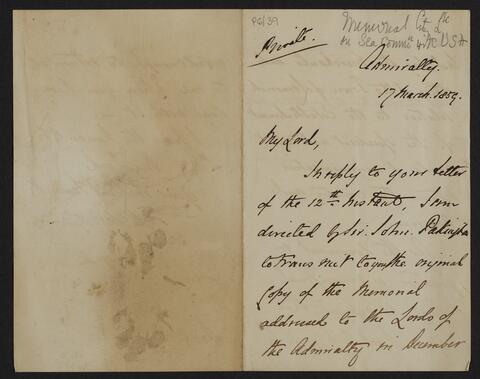 PG/39
Memorial City
on Sea Commn USA
Private.
Admiralty.
17 March. 1859.
My Lord,
In reply to your letter
of the 12th Instant, I am
directed by Sir. John. Pakington
to transmit to you the original
Copy of the Memorial
addressed to the Lords of
the Admiralty in December